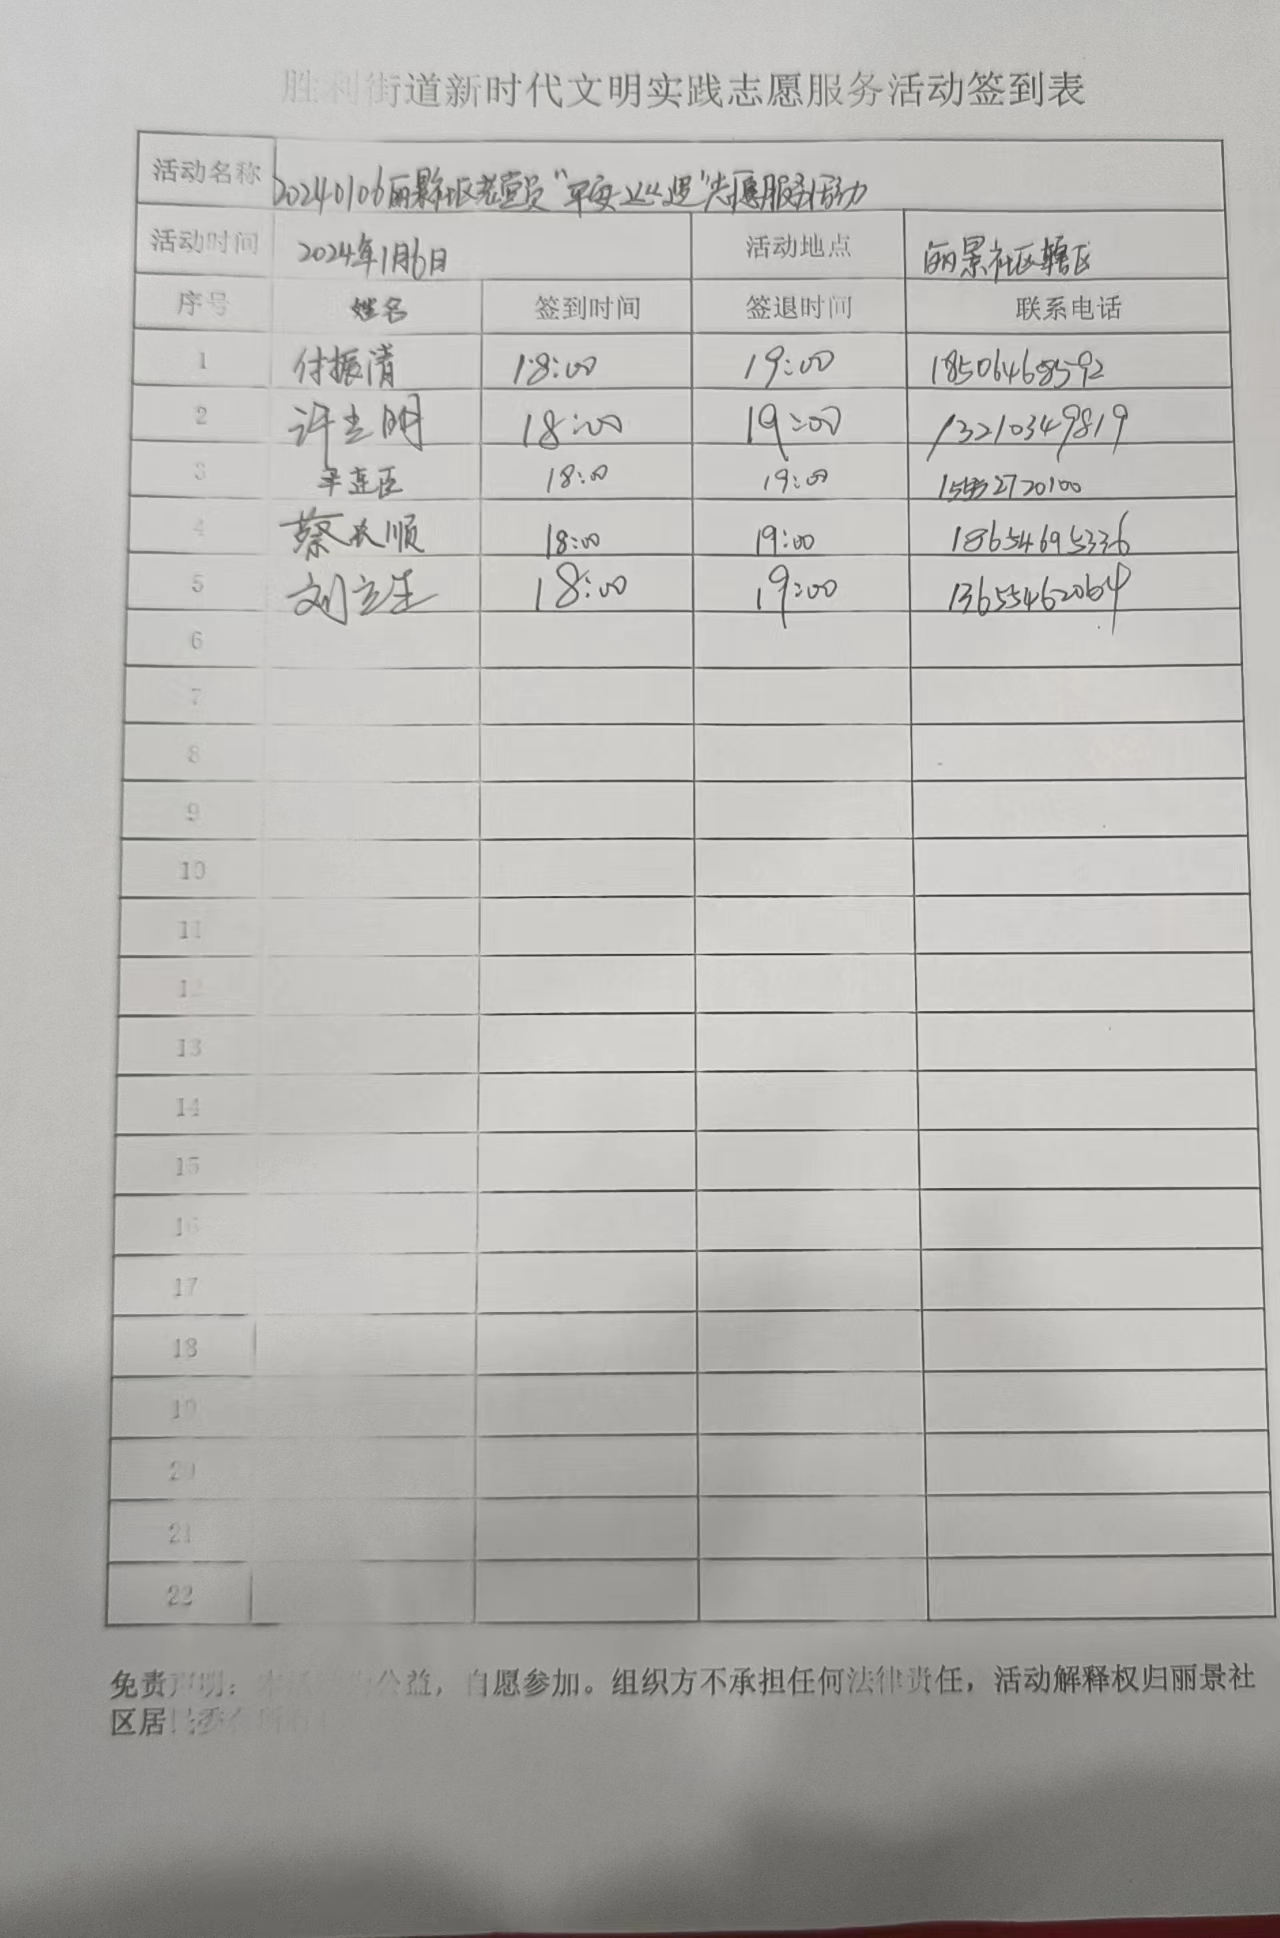 胜利街道新时代文明实践志愿服务活动签到表
活动名称 20240106丽景社区老党员“平安巡逻”志愿服务活动
活动时间 2024年1月6日 活动地点 丽景社区辖区
序号 姓名 签到时间 签退时间 联系电话
1 付振清 18:00 19:00 18506468592
2 许立明 18:00 19:00 13210349819
3 连臣 18:00 19:00
4 蔡长顺 18:00 19:00 18654695336
5 刘立生 18:00 19:00 13655462064
6
7
8
9
10
11
12
13
14
15
16
17
18
19
20
21
22
免责声明：公益，自愿参加。组织方不承担任何法律责任，活动解释权归丽景社
区居